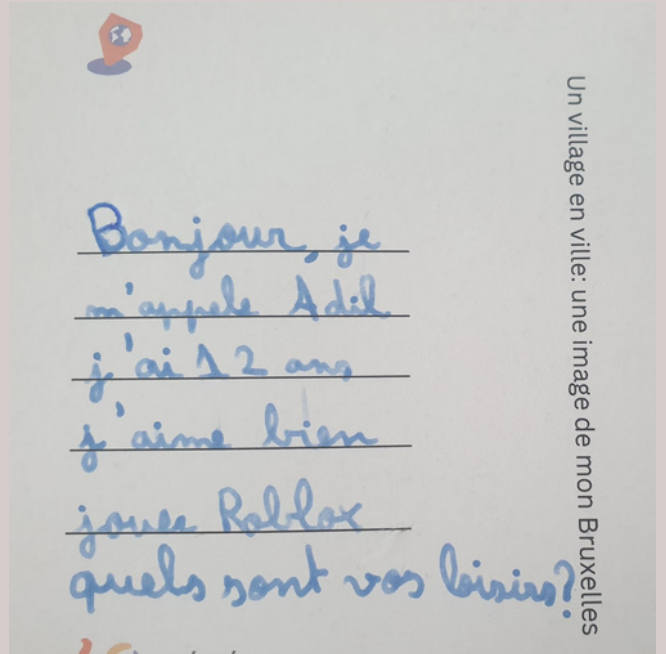 Bonjour, je
m'appele Adil
j'ai 12 ans
j'aime bien
jouer Roblox
quels sont vos loisirs?
Un village en ville: une image de mon Bruxelles